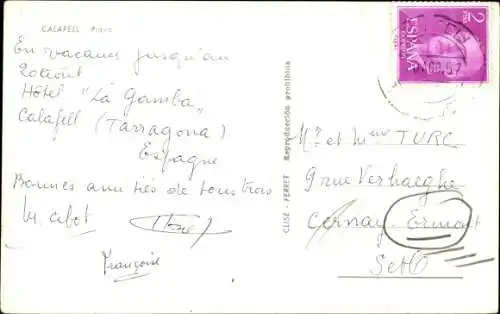 CALAFELL Playa
En vacances jusqu'au
20 août
Hôtel "La Gamba"
Calafell (Tarragona)
Espagne
Bonnes amitiés de tous trois
Françoise
CLISE - FERRET Reproducción prohibida
2 PTAS
ESPAÑA
CORREOS
Mr et Mme TURC
9 rue Verhaeghe
Cernay Ermont
Set O